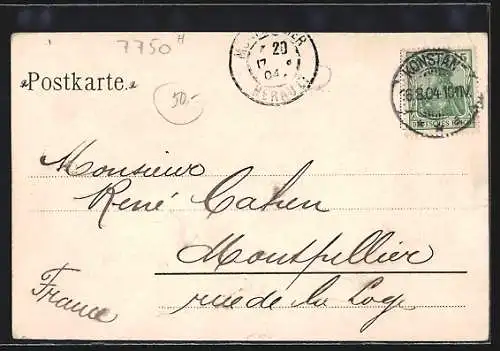 7750 H
MONTPELLIER
20
17
04
HERAULT
KONSTAN
6.8.04.10-11V.
DEUTSCHES REICH
Postkarte.
50,-
Monsieur
René Cahen
Montpellier
rue de la Loge
France